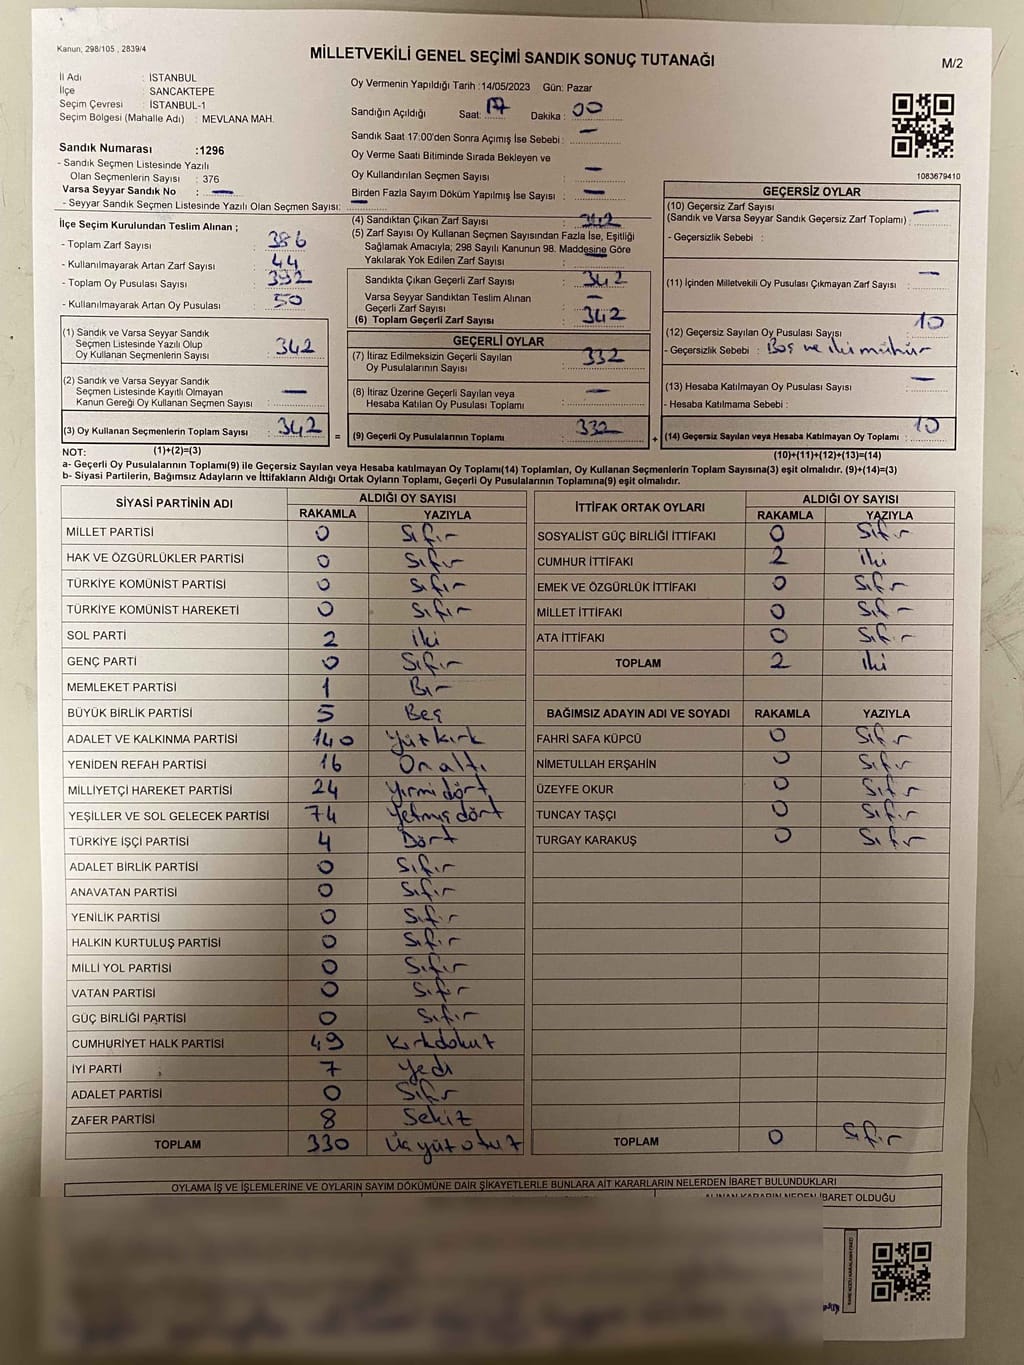 Kanun; 298/105 , 2839/4
MİLLETVEKİLİ GENEL SEÇİMİ SANDIK SONUÇ TUTANAĞI
M/2
İl Adı : İSTANBUL
İlçe : SANCAKTEPE
Seçim Çevresi : İSTANBUL-1
Seçim Bölgesi (Mahalle Adı) : MEVLANA MAH.
Oy Vermenin Yapıldığı Tarih :14/05/2023 Gün: Pazar
Sandığın Açıldığı Saat: 17 Dakika : 00
Sandık Saat 17:00'den Sonra Açımış İse Sebebi : —
Oy Verme Saati Bitiminde Sırada Bekleyen ve
Oy Kullandırılan Seçmen Sayısı : —
Birden Fazla Sayım Döküm Yapılmış İse Sayısı : —
1083679410
Sandık Numarası :1296
- Sandık Seçmen Listesinde Yazılı
Olan Seçmenlerin Sayısı : 376
Varsa Seyyar Sandık No : —
- Seyyar Sandık Seçmen Listesinde Yazılı Olan Seçmen Sayısı: —
İlçe Seçim Kurulundan Teslim Alınan ;
- Toplam Zarf Sayısı : 386
- Kullanılmayarak Artan Zarf Sayısı : 44
- Toplam Oy Pusulası Sayısı : 392
- Kullanılmayarak Artan Oy Pusulası : 50
(1) Sandık ve Varsa Seyyar Sandık
Seçmen Listesinde Yazılı Olup
Oy Kullanan Seçmenlerin Sayısı : 342
(2) Sandık ve Varsa Seyyar Sandık
Seçmen Listesinde Kayıtlı Olmayan
Kanun Gereği Oy Kullanan Seçmen Sayısı : —
(3) Oy Kullanan Seçmenlerin Toplam Sayısı : 342
(4) Sandıktan Çıkan Zarf Sayısı : 342
(5) Zarf Sayısı Oy Kullanan Seçmen Sayısından Fazla İse, Eşitliği
Sağlamak Amacıyla; 298 Sayılı Kanunun 98. Maddesine Göre
Yakılarak Yok Edilen Zarf Sayısı : —
Sandıkta Çıkan Geçerli Zarf Sayısı : 342
Varsa Seyyar Sandıktan Teslim Alınan
Geçerli Zarf Sayısı : —
(6) Toplam Geçerli Zarf Sayısı : 342
GEÇERLİ OYLAR
(7) İtiraz Edilmeksizin Geçerli Sayılan
Oy Pusulalarının Sayısı : 332
(8) İtiraz Üzerine Geçerli Sayılan veya
Hesaba Katılan Oy Pusulası Toplamı : —
= (9) Geçerli Oy Pusulalarının Toplamı : 332
GEÇERSİZ OYLAR
(10) Geçersiz Zarf Sayısı
(Sandık ve Varsa Seyyar Sandık Geçersiz Zarf Toplamı) : —
- Geçersizlik Sebebi :
(11) İçinden Milletvekili Oy Pusulası Çıkmayan Zarf Sayısı : —
(12) Geçersiz Sayılan Oy Pusulası Sayısı : 10
- Geçersizlik Sebebi : Boş ve iki mühür
(13) Hesaba Katılmayan Oy Pusulası Sayısı : —
- Hesaba Katılmama Sebebi :
+ (14) Geçersiz Sayılan veya Hesaba Katılmayan Oy Toplamı : 10
NOT: (1)+(2)=(3)
(10)+(11)+(12)+(13)=(14)
a- Geçerli Oy Pusulalarının Toplamı(9) ile Geçersiz Sayılan veya Hesaba katılmayan Oy Toplamı(14) Toplamları, Oy Kullanan Seçmenlerin Toplam Sayısına(3) eşit olmalıdır. (9)+(14)=(3)
b- Siyasi Partilerin, Bağımsız Adayların ve İttifakların Aldığı Ortak Oyların Toplamı, Geçerli Oy Pusulalarının Toplamına(9) eşit olmalıdır.
SİYASİ PARTİNİN ADI ALDIĞI OY SAYISI
RAKAMLA YAZIYLA
MİLLET PARTİSİ 0 Sıfır
HAK VE ÖZGÜRLÜKLER PARTİSİ 0 Sıfır
TÜRKİYE KOMÜNİST PARTİSİ 0 Sıfır
TÜRKİYE KOMÜNİST HAREKETİ 0 Sıfır
SOL PARTİ 2 iki
GENÇ PARTİ 0 Sıfır
MEMLEKET PARTİSİ 1 Bir
BÜYÜK BİRLİK PARTİSİ 5 Beş
ADALET VE KALKINMA PARTİSİ 140 Yüzkırk
YENİDEN REFAH PARTİSİ 16 On altı
MİLLİYETÇİ HAREKET PARTİSİ 24 Yirmi dört
YEŞİLLER VE SOL GELECEK PARTİSİ 74 Yetmiş dört
TÜRKİYE İŞÇİ PARTİSİ 4 Dört
ADALET BİRLİK PARTİSİ 0 Sıfır
ANAVATAN PARTİSİ 0 Sıfır
YENİLİK PARTİSİ 0 Sıfır
HALKIN KURTULUŞ PARTİSİ 0 Sıfır
MİLLİ YOL PARTİSİ 0 Sıfır
VATAN PARTİSİ 0 Sıfır
GÜÇ BİRLİĞİ PARTİSİ 0 Sıfır
CUMHURİYET HALK PARTİSİ 49 Kırkdokuz
İYİ PARTİ 7 Yedi
ADALET PARTİSİ 0 Sıfır
ZAFER PARTİSİ 8 Sekiz
TOPLAM 330 Üçyüz otuz
İTTİFAK ORTAK OYLARI ALDIĞI OY SAYISI
RAKAMLA YAZIYLA
SOSYALİST GÜÇ BİRLİĞİ İTTİFAKI 0 Sıfır
CUMHUR İTTİFAKI 2 iki
EMEK VE ÖZGÜRLÜK İTTİFAKI 0 Sıfır
MİLLET İTTİFAKI 0 Sıfır
ATA İTTİFAKI 0 Sıfır
TOPLAM 2 iki
BAĞIMSIZ ADAYIN ADI VE SOYADI RAKAMLA YAZIYLA
FAHRİ SAFA KÜPCÜ 0 Sıfır
NİMETULLAH ERŞAHİN 0 Sıfır
ÜZEYFE OKUR 0 Sıfır
TUNCAY TAŞÇI 0 Sıfır
TURGAY KARAKUŞ 0 Sıfır
TOPLAM 0 Sıfır
OYLAMA İŞ VE İŞLEMLERİNE VE OYLARIN SAYIM DÖKÜMÜNE DAİR ŞİKAYETLERLE BUNLARA AİT KARARLARIN NELERDEN İBARET BULUNDUKLARI
ALINAN KARARIN NEDEN İBARET OLDUĞU